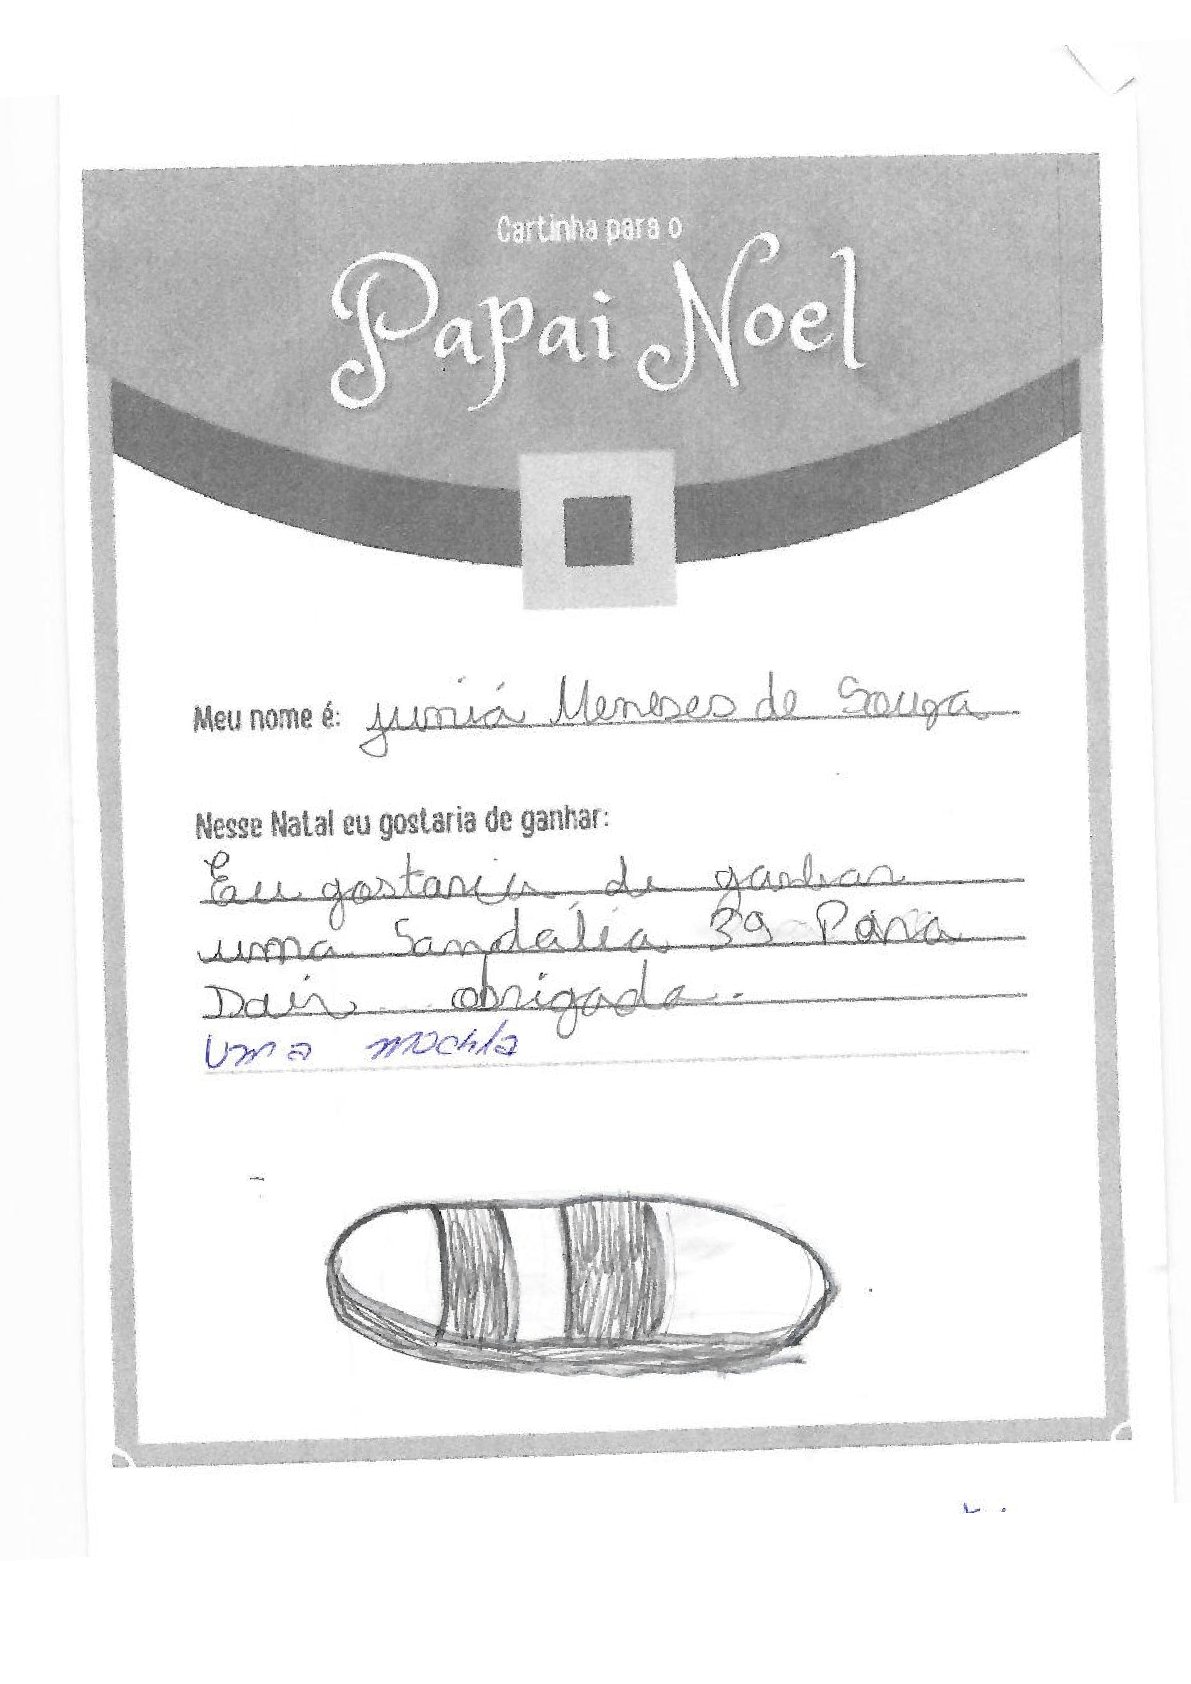 Cartinha para o
Papai Noel
Meu nome é: Juniá Meneses de Souza
Nesse Natal eu gostaria de ganhar:
Eu gostaria de ganhar
uma Sandália 39 Para
Dair obrigada.
uma mochla